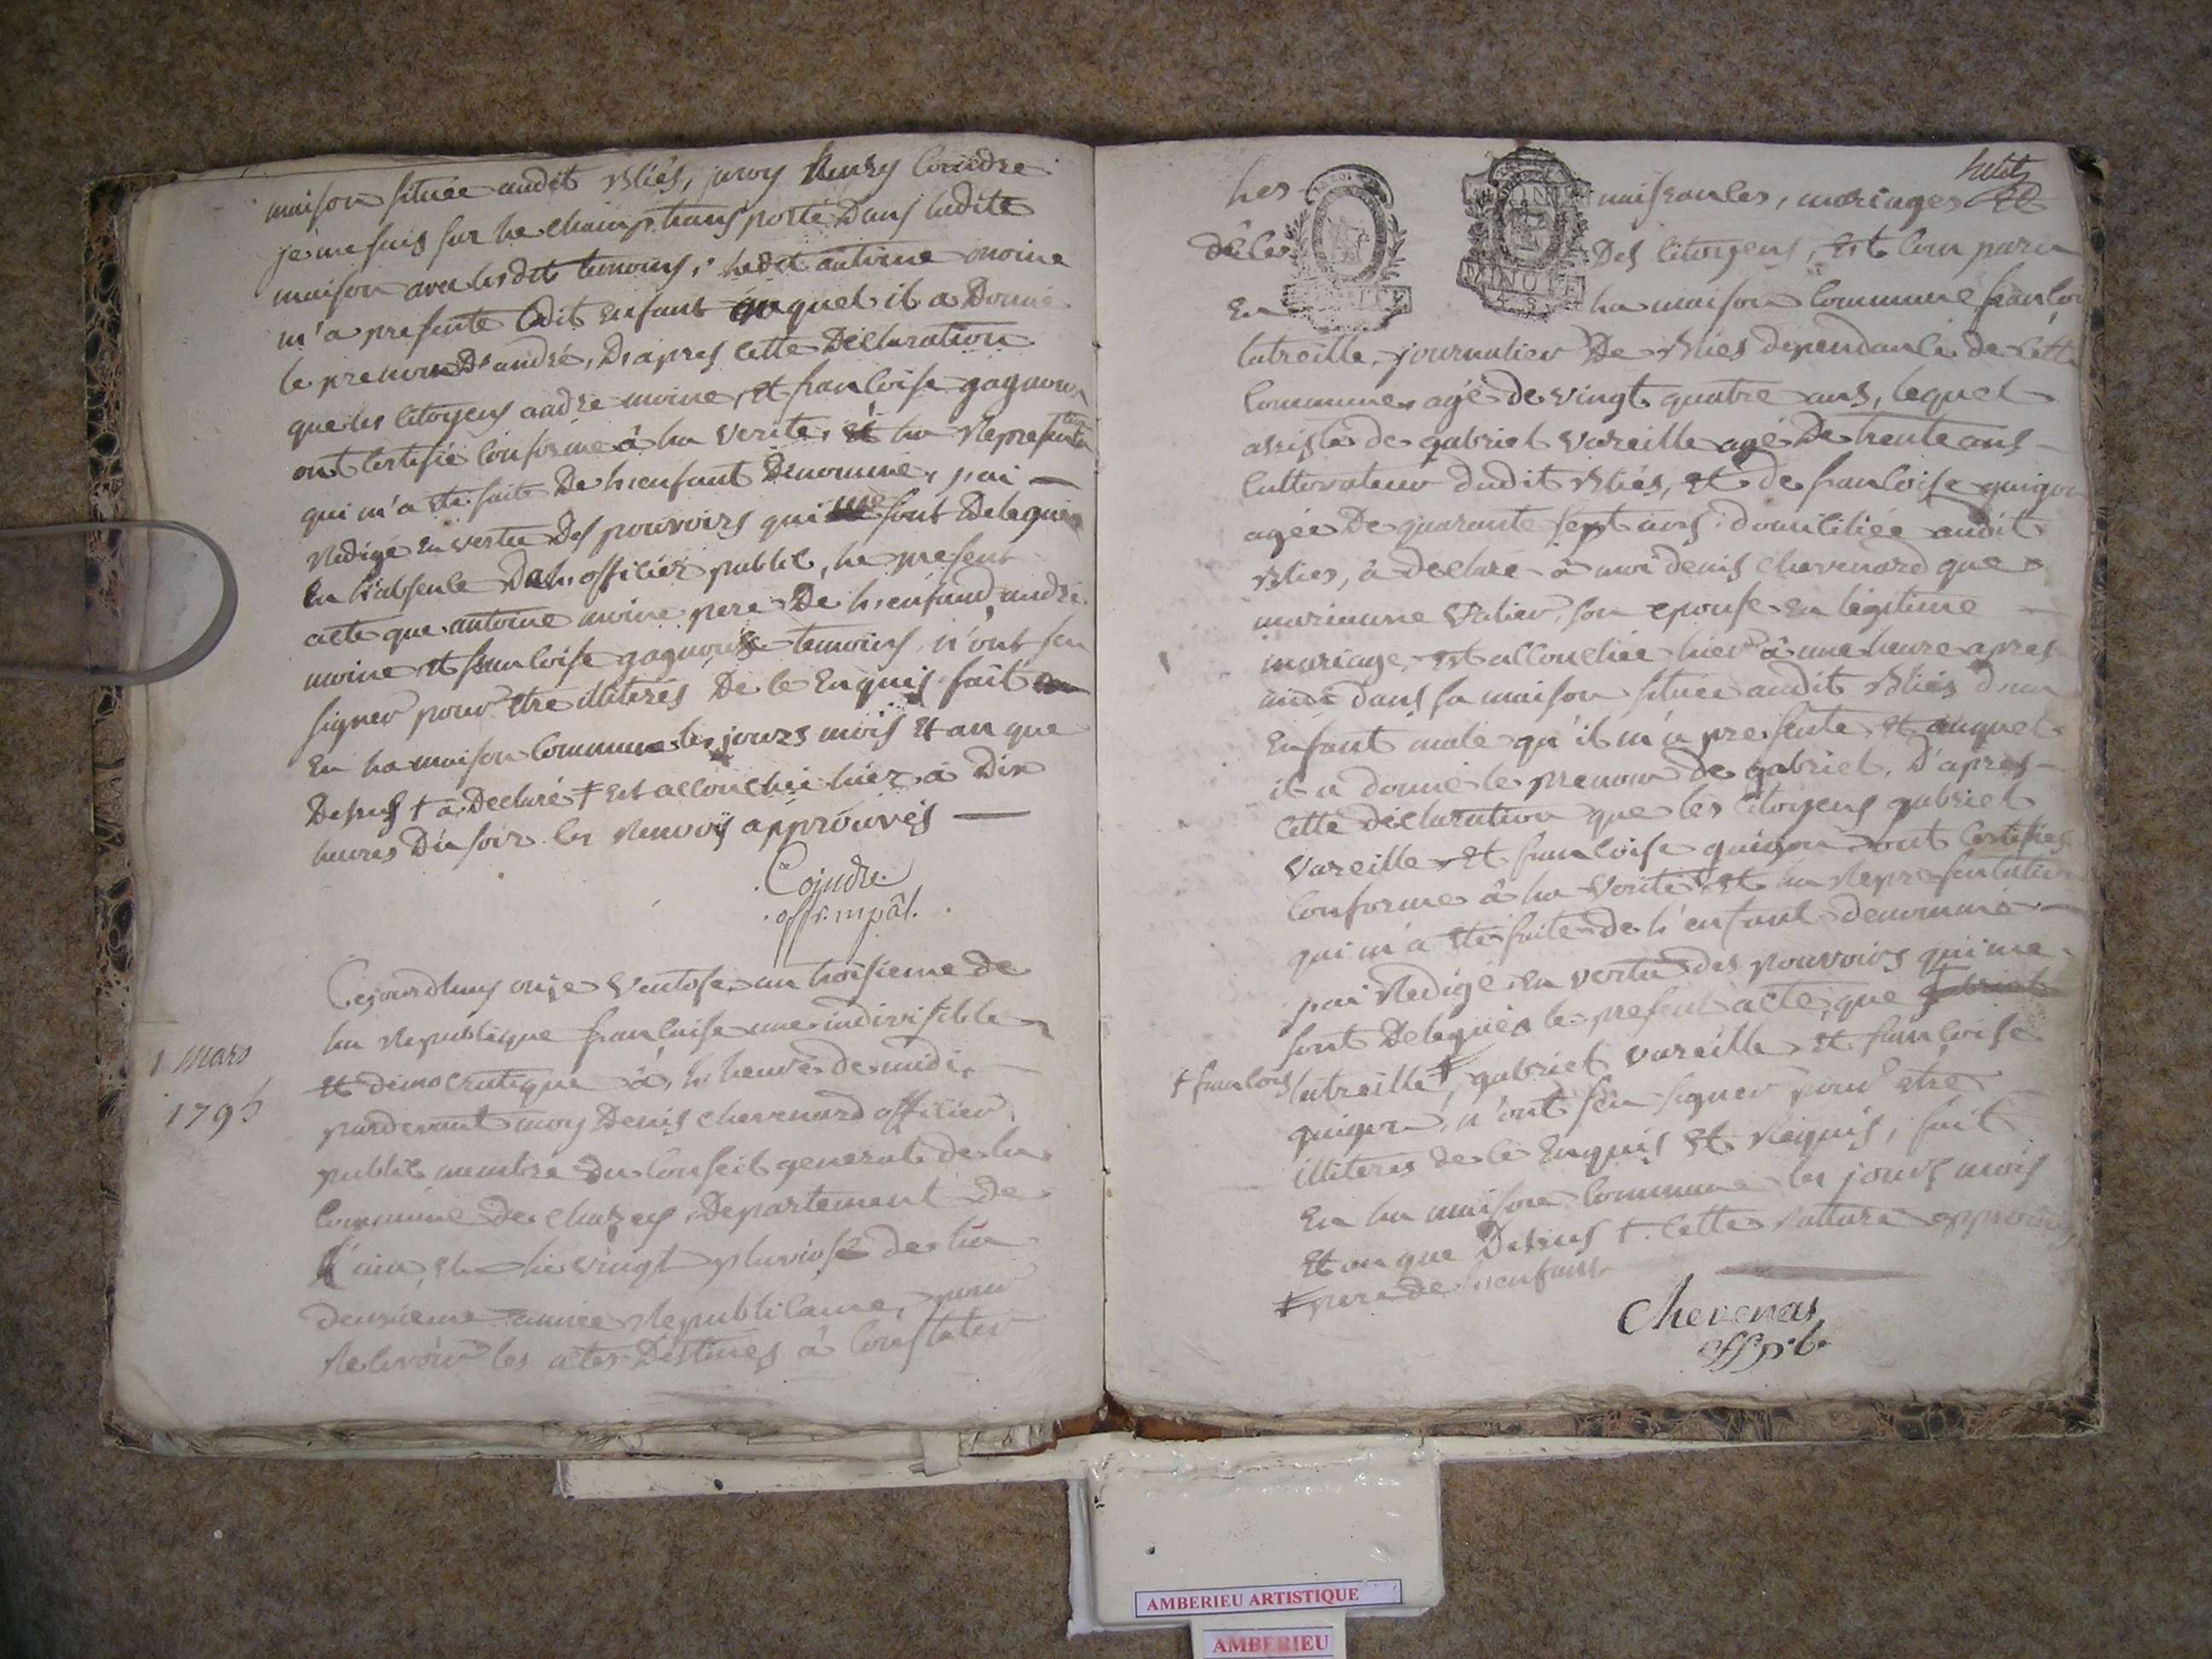 maison située audit Bliés, jaroy henry Coindre
je me suis sur le champ transporté dans ladite
maison avec lesdit temoins, ledit antoine moine
m'a presenté ledit enfant auquel il a donné
le prenom d'andré, D'apres cette Declaration
que les citoyens andre moine, et francoise gagnoux
ont certifié conforme à la verité, et la Represention
qui m'a eté faite De l'enfant Denommé, jai
Redigé en vertu Des pouvoirs qui me sont Delegués
En l'absence De l'officier public, le present
acte que antoine moine pere De l'enfant, andré
moine et francoise gagnoux temoins, n'ont seu
signer pour etre illiterés De ce Enquis fait
En la maison Commune les jours mois et an que
Dessus † a Declaré ‡ est accouchée hier à Dix
heures Du soir les Renvoÿ approuvés
Coindre
off. mpâl.
Cejourdhuy onze Ventose an troisieme de
la Republique francaise une indivisible
et democratique à l'heure de midi,
pardevant moy Denis Chevenard officier
public membre du Conseil general de la
Commune de chazey, Departement De
l'ain, elu le vingt pluviose de la
deuxieme année Republicaine, pour
Recevoir les actes Destinés à Constater
1 Mars
1795
huits
les naissances, mariages et
décès Des Citoyens, Est Comparu
En la maison Commune françoi
latreille, journalier De Bliés dependance de Cette
Commune, agé de vingt quatre ans, lequel
assisté de gabriel Vareille agé De trente ans
Cultivateur dudit Bliés, et de francoise guigon
agée De quarante sept ans domiciliée audit
Blies, à declaré à moi denis chevenard que
marianne Valier, son epouse en legitime
mariage, est accouchée hier à une heure apres
midi dans sa maison située audit Bliés d'un
Enfant male qu'il m'a presenté et auquel
il a donné le prenom de gabriel, D'apres
cette declaration que les Citoyens gabriel
Vareille et francoise guigon ont certifiés
conforme à la Verité, et la Representation
qui m'a eté faite de l'enfant denommé
jai Redigé en vertu des pouvoirs qui me
sont Delegués le present acte, que gabriel
† francois latreille ‡, gabriel vareille et francoise
guigon, n'ont seu signer pour etre
illiteres de ce Enquis et Requis, fait
En la maison Commune les jours mois
Et an que Dessus † Cette Rature approuvé
‡ pere de l'enfant
Chevenar
off p.b.
AMBERIEU ARTISTIQUE
AMBERIEU